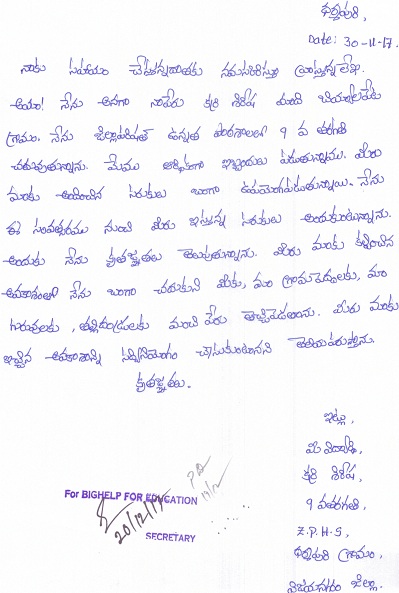 ధర్మపురి,
Date: 30-11-17.
నాకు సహాయం చేస్తున్నదాతకు నమస్కరిస్తూ వ్రాస్తున్న లేఖ.
అయ్యా! నేను అనగా నాపేరు కర్రి శిరీష మంచి
గ్రామం. నేను జిల్లాపరిషత్ ఉన్నత పాఠశాలలో 9 వ తరగతి
చదువుతున్నాను. మేము ఆర్ధికంగా ఇబ్బందులు పడుతున్నాము. మీరు
మాకు అందించిన సరుకులు బాగా ఉపయోగపడుతున్నాయి. నేను
ఈ సంవత్సరము నుంచి మీరు ఇస్తున్న సరుకులు అందుకుంటున్నాను.
అందుకు నేను కృతజ్ఞతలు తెలుపుతున్నాను. మీరు మాకు కల్పించిన
అవకాశంతో నేను బాగా చదుకుని మీకు, మా గ్రామపెద్దలకు, మా
గురువులకు, తల్లిదండ్రులకు మంచి పేరు తెచ్చిపెడతాను. మీరు మాకు
ఇచ్చిన అవకాశాన్ని సద్వినియోగం చేసుకుంటానని తెలియపరుస్తాను.
కృతజ్ఞతలు.
ఇట్లు,
మీ విద్యార్థి,
కర్రి శిరీష,
9 వతరగతి,
Z.P.H.S,
ధర్మపురి గ్రామం,
విజయనగరం జిల్లా.
For BIGHELP FOR EDUCATION
20/12/17
SECRETARY